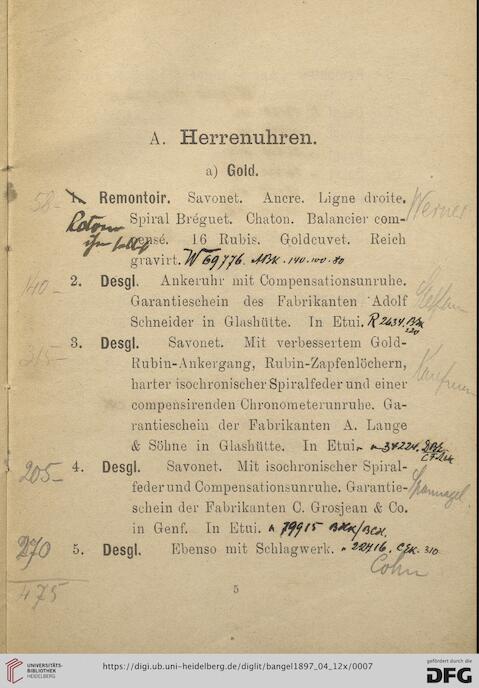 A. Herrenuhren.
a) Gold.
58- 1. Remontoir. Savonet. Ancre. Ligne droite. Werner
Spiral Bréguet. Chaton. Balancier com-
pensé. 16 Rubis. Goldcuvet. Reich
gravirt. W 69776. 140.100.80
140- 2. Desgl. Ankeruhr mit Compensationsunruhe.
Garantieschein des Fabrikanten Adolf
Schneider in Glashütte. In Etui. R 2634.
315- 3. Desgl. Savonet. Mit verbessertem Gold-
Rubin-Ankergang, Rubin-Zapfenlöchern,
harter isochronischer Spiralfeder und einer
compensirenden Chronometerunruhe. Ga-
rantieschein der Fabrikanten A. Lange
& Söhne in Glashütte. In Etui. 34224.
205- 4. Desgl. Savonet. Mit isochronischer Spiral-
feder und Compensationsunruhe. Garantie-
schein der Fabrikanten C. Grosjean & Co.
in Genf. In Etui. 79915
270 5. Desgl. Ebenso mit Schlagwerk. 22416. 310
Cohn
475
5
UNIVERSITÄTS-
BIBLIOTHEK
HEIDELBERG
https://digi.ub.uni-heidelberg.de/diglit/bangel1897_04_12x/0007
gefördert durch die
DFG